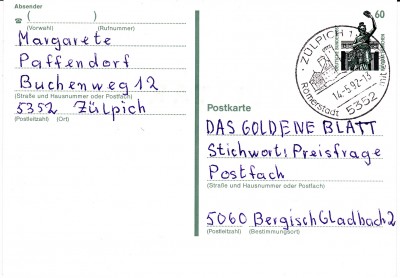 Absender
( )
(Vorwahl) (Rufnummer)
Margarete
Paffendorf
Buchenweg 12
(Straße und Hausnummer oder Postfach)
5352 Zülpich
(Postleitzahl) (Ort)
60
ZÜLPICH 1
14-5.92-13
Römerstadt
5352
Postkarte
DAS GOLDENE BLATT
Stichwort: Preisfrage
Postfach
(Straße und Hausnummer oder Postfach)
5060 Bergisch Gladbach 2
(Postleitzahl) (Bestimmungsort)